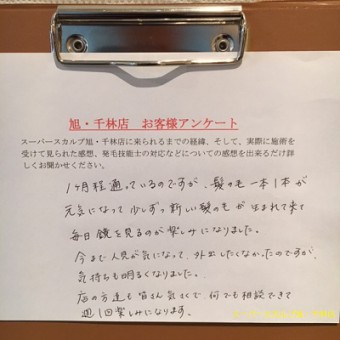 旭・千林店　お客様アンケート
スーパースカルプ旭・千林店に来られるまでの経緯、そして、実際に施術を
受けて見られた感想、発毛技能士の対応などについての感想を出来るだけ詳
しくお聞かせください。
1ヶ月程通っているのですが、髪の毛一本1本が
元気になって少しずつ新しい髪の毛が生まれて来て
毎日鏡を見るのが楽しみになりました。
今まで人目が気になって、外出したくなかったのですが、
気持ちも明るくなりました。
店の方達も皆さん気さくで、何でも相談できて
週1回楽しみになります。